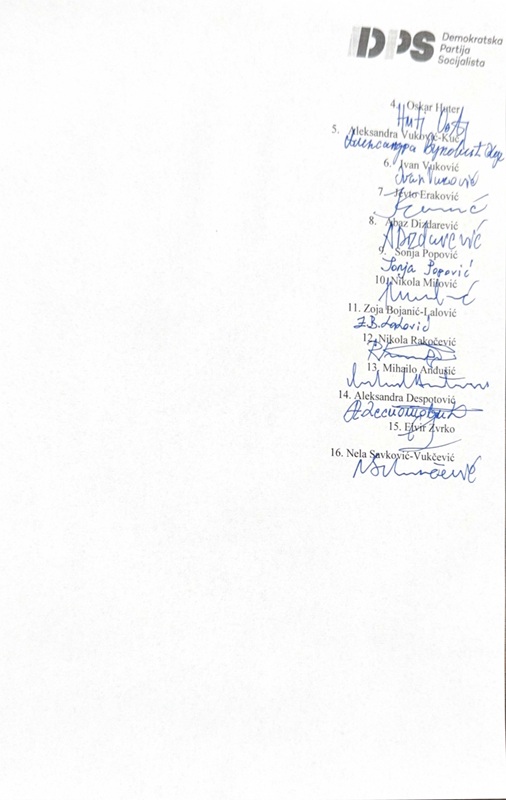 DPS Demokratska
Partija
Socijalista
4. Oskar Huter
5. Aleksandra Vuković-Kuč
6. Ivan Vuković
Ivan Vuković
7. Jevto Eraković
8. Abaz Dizdarević
9. Sonja Popović
Sonja Popović
10. Nikola Milović
11. Zoja Bojanić-Lalović
Z.B. Lalović
12. Nikola Rakočević
13. Mihailo Anđušić
14. Aleksandra Despotović
15. Elvir Zvrko
16. Nela Savković-Vukčević